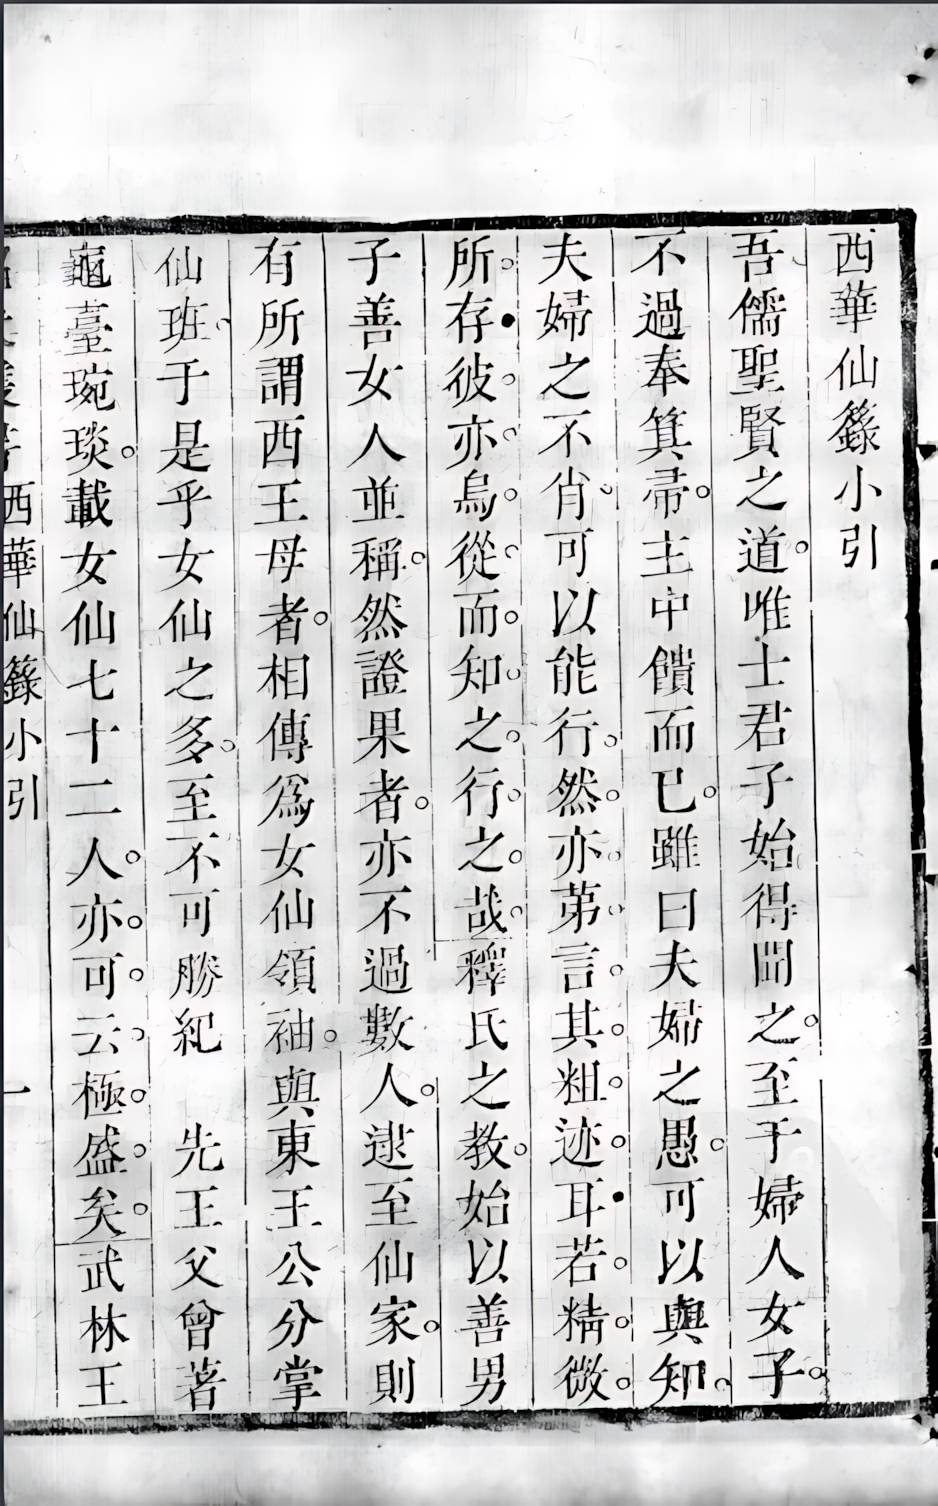 西華仙籙小引
吾儒聖賢之道唯士君子始得聞之至于婦人女子
不過奉箕帚主中饋而已雖曰夫婦之愚可以與知
夫婦之不肖可以能行然亦第言其粗迹耳若精微
所存彼亦烏從而知之行之哉釋氏之教始以善男
子善女人並稱然證果者亦不過數人逮至仙家則
有所謂西王母者相傳爲女仙領袖與東王公分掌
仙班于是乎女仙之多至不可勝紀　先王父曾著
龜臺琬琰載女仙七十二人亦可云極盛矣武林王
西華仙籙小引
一